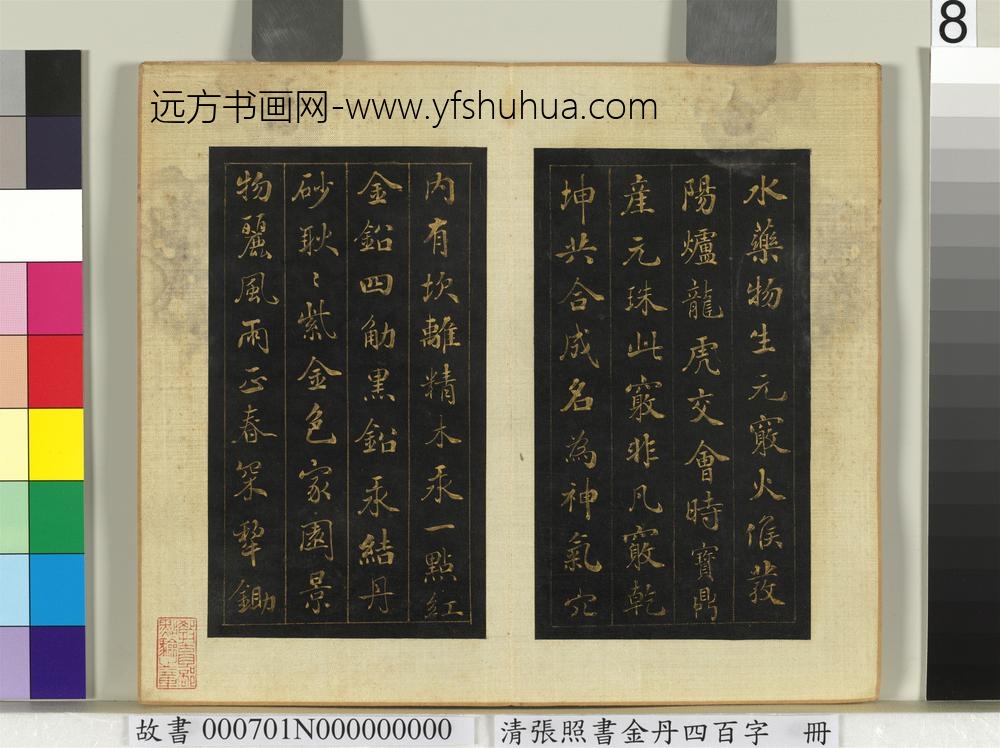 8
远方书画网-www.yfshuhua.com
水藥物生元竅火候發
陽爐龍虎交會時寶鼎
產元珠此竅非凡竅乾
坤共合成名為神氣穴
內有坎離精木汞一點紅
金鉛四觔黑鉛汞結丹
砂耿〻紫金色家園景
物麗風雨正春深犁鋤
故書 000701N000000000 清張照書金丹四百字 冊